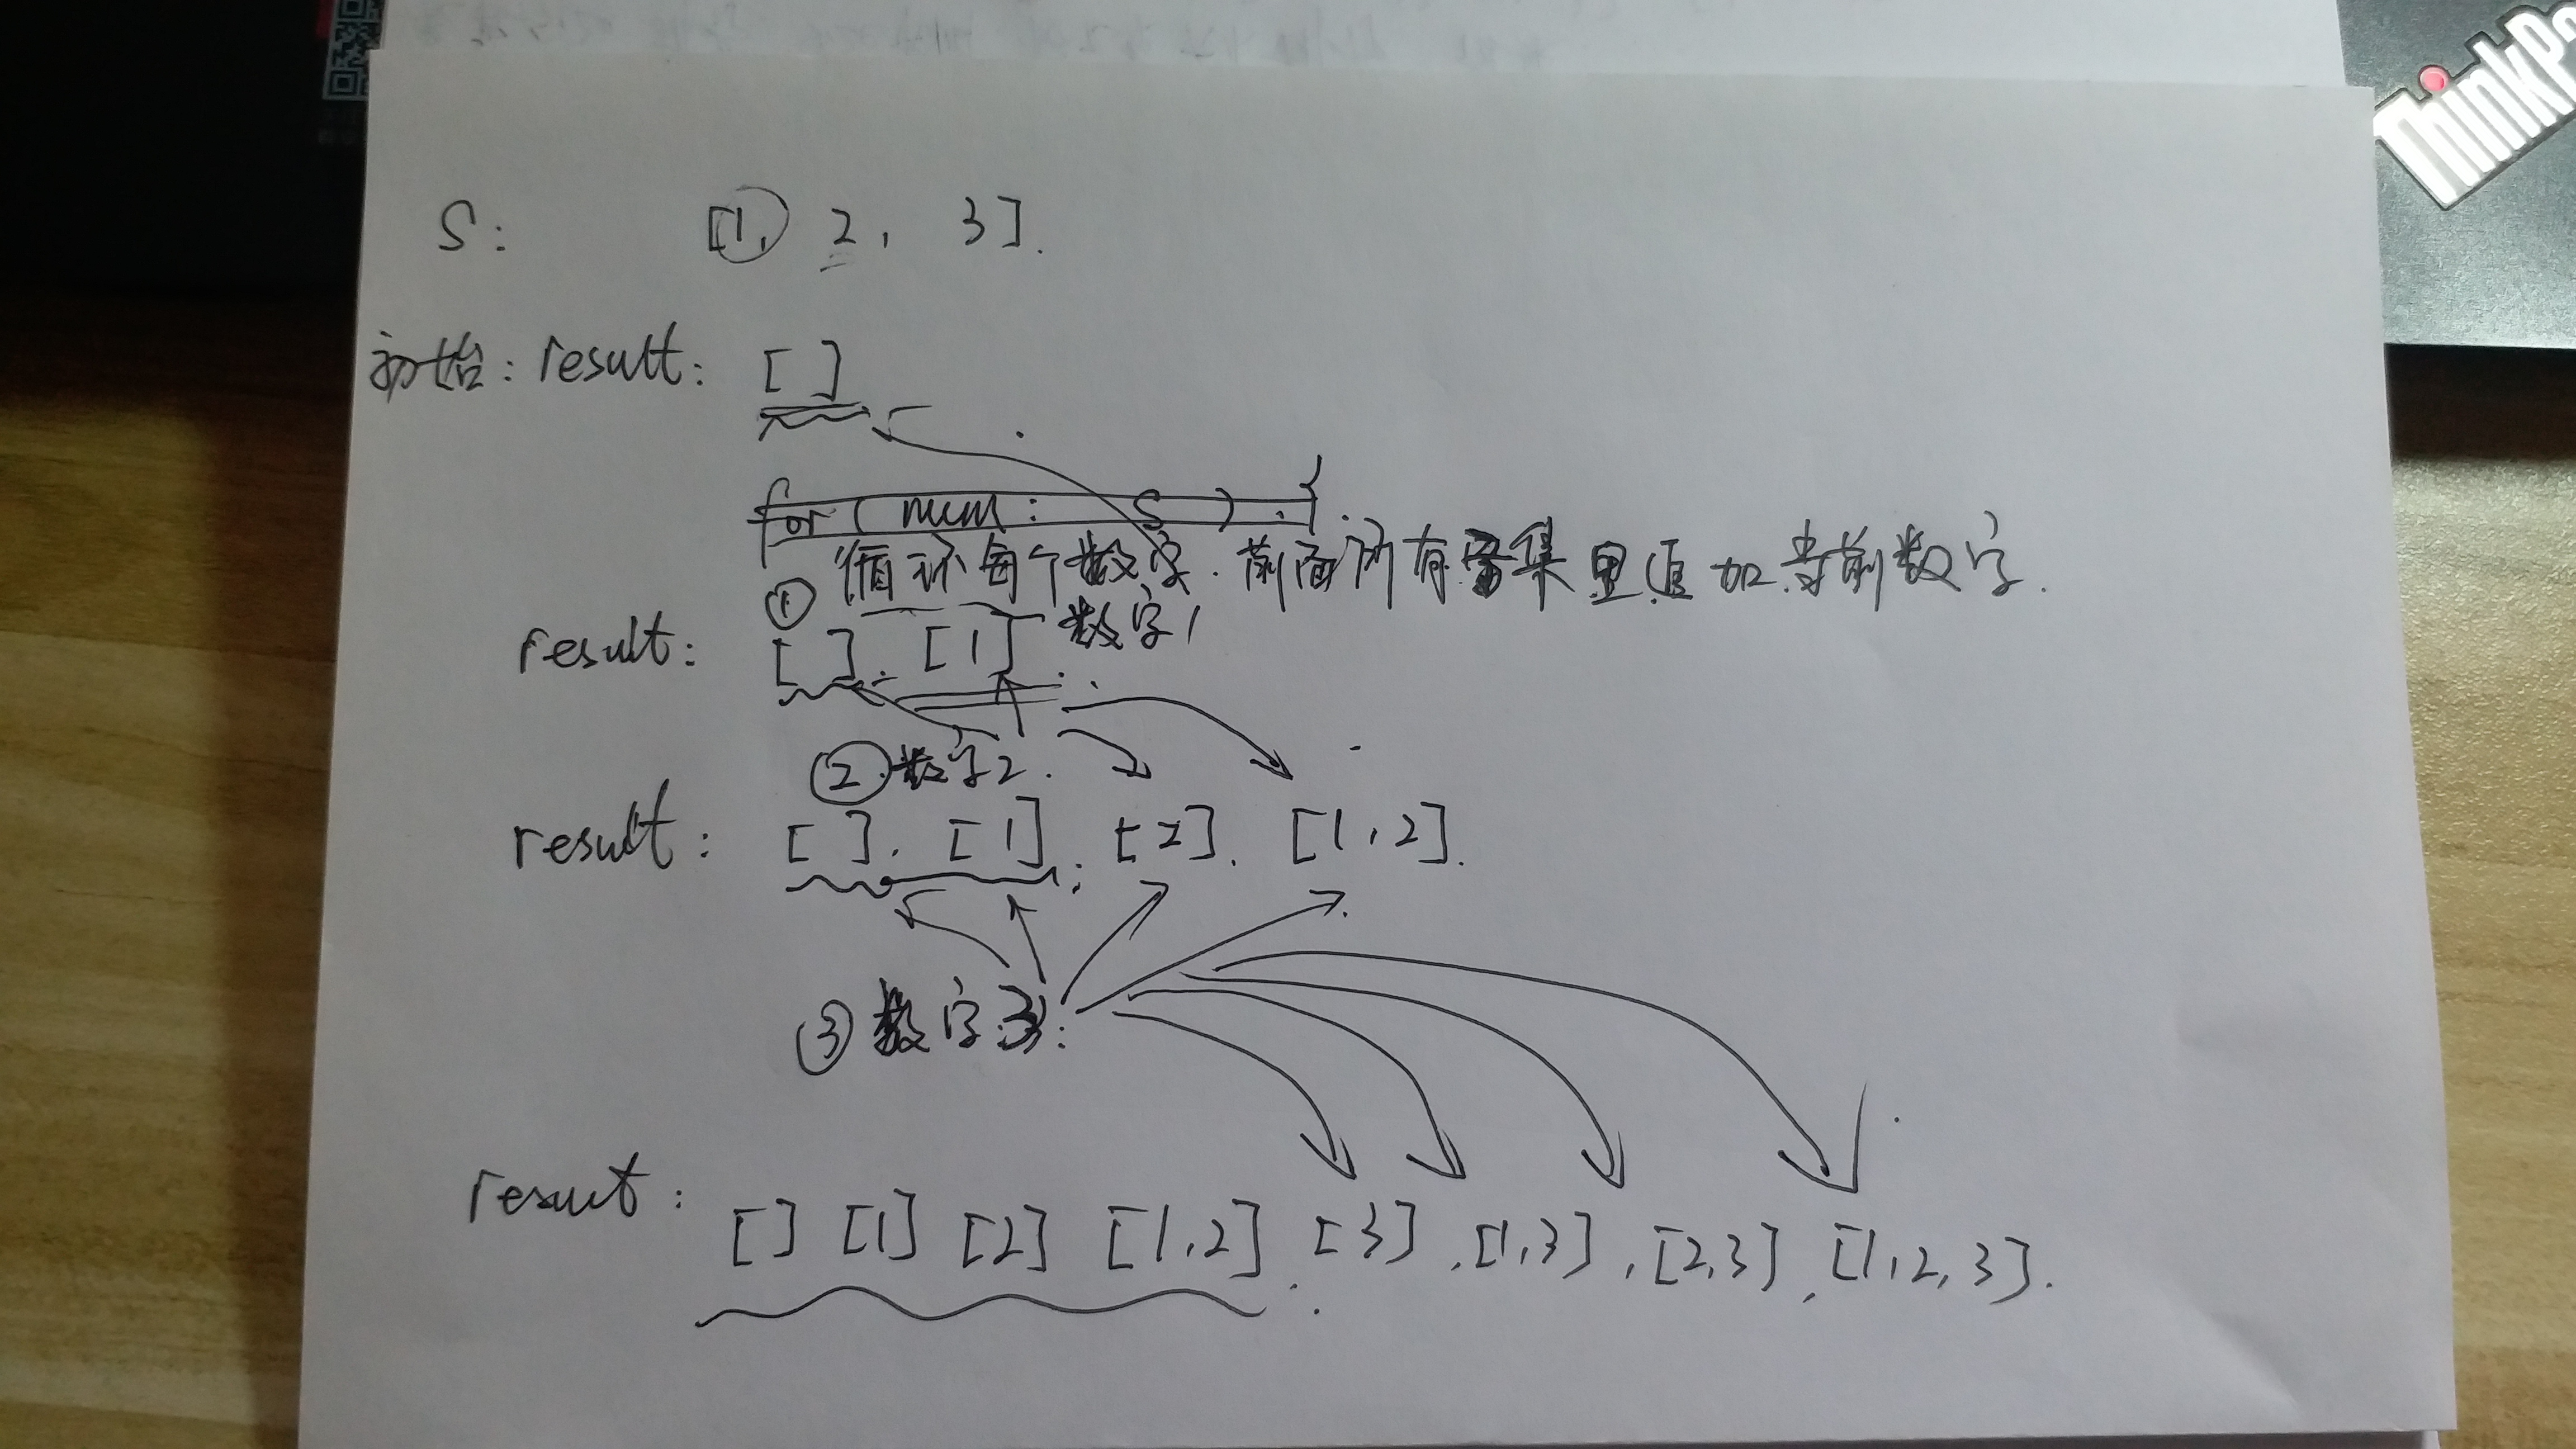 ThinkPa
S: [1, 2, 3].
初始: result: [ ]
for ( num : S ) {
循环每个数字. 前面所有集里值加当前数字.
① 数字1
result: [ ], [1]
② 数字2.
result: [ ], [1], [2], [1,2].
③ 数字3:
result: [] [1] [2] [1,2], [3], [1,3], [2,3], [1,2,3].